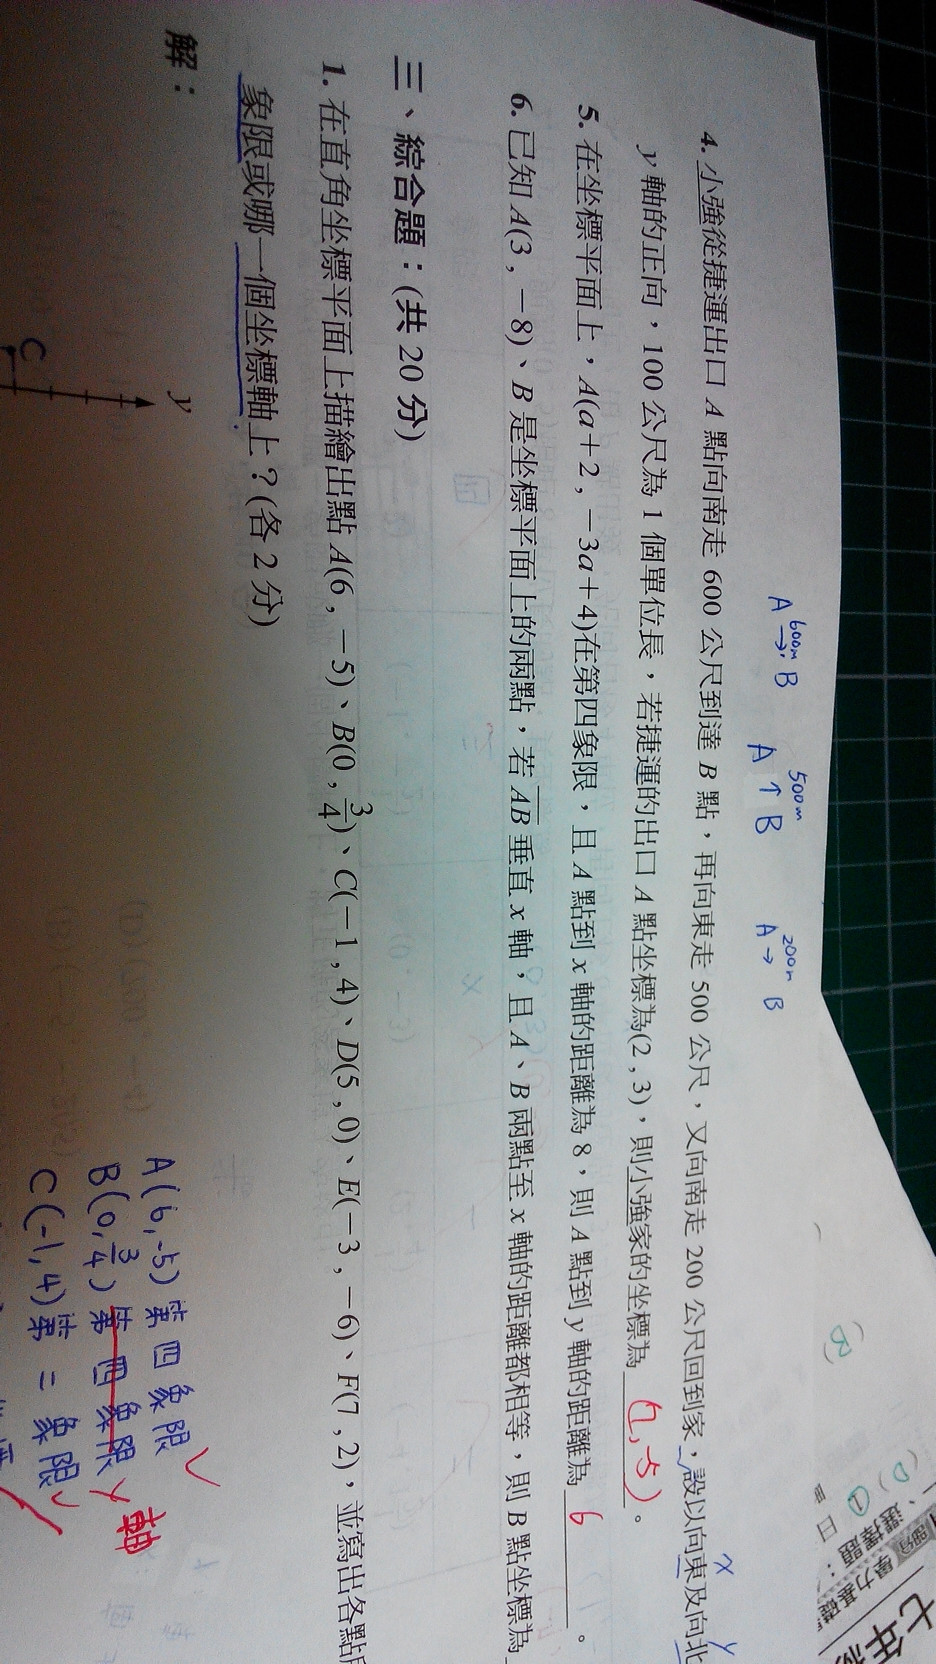 A 600m→ B
A 500m↑ B
A 200m→ B
4. 小強從捷運出口 A 點向南走 600 公尺到達 B 點，再向東走 500 公尺，又向南走 200 公尺回到家，設以向東及向北
x y
y 軸的正向，100 公尺為 1 個單位長，若捷運的出口 A 點坐標為(2 , 3)，則小強家的坐標為 (7,-5)。
5. 在坐標平面上，A(a＋2 , －3a＋4)在第四象限，且 A 點到 x 軸的距離為 8，則 A 點到 y 軸的距離為 6 。
6. 已知 A(3 , －8)、B 是坐標平面上的兩點，若 AB 垂直 x 軸，且 A、B 兩點至 x 軸的距離都相等，則 B 點坐標為
三、綜合題：(共 20 分)
1. 在直角坐標平面上描繪出點 A(6 , －5)、B(0 , 3/4)、C(－1 , 4)、D(5 , 0)、E(－3 , －6)、F(7 , 2)，並寫出各點
象限或哪一個坐標軸上？(各 2 分)
解：
y
C
A(6,-5) 第四象限
B(0, 3/4) 第四象限 軸
C(-1,4) 第二象限
七年
學力基礎
選擇題：